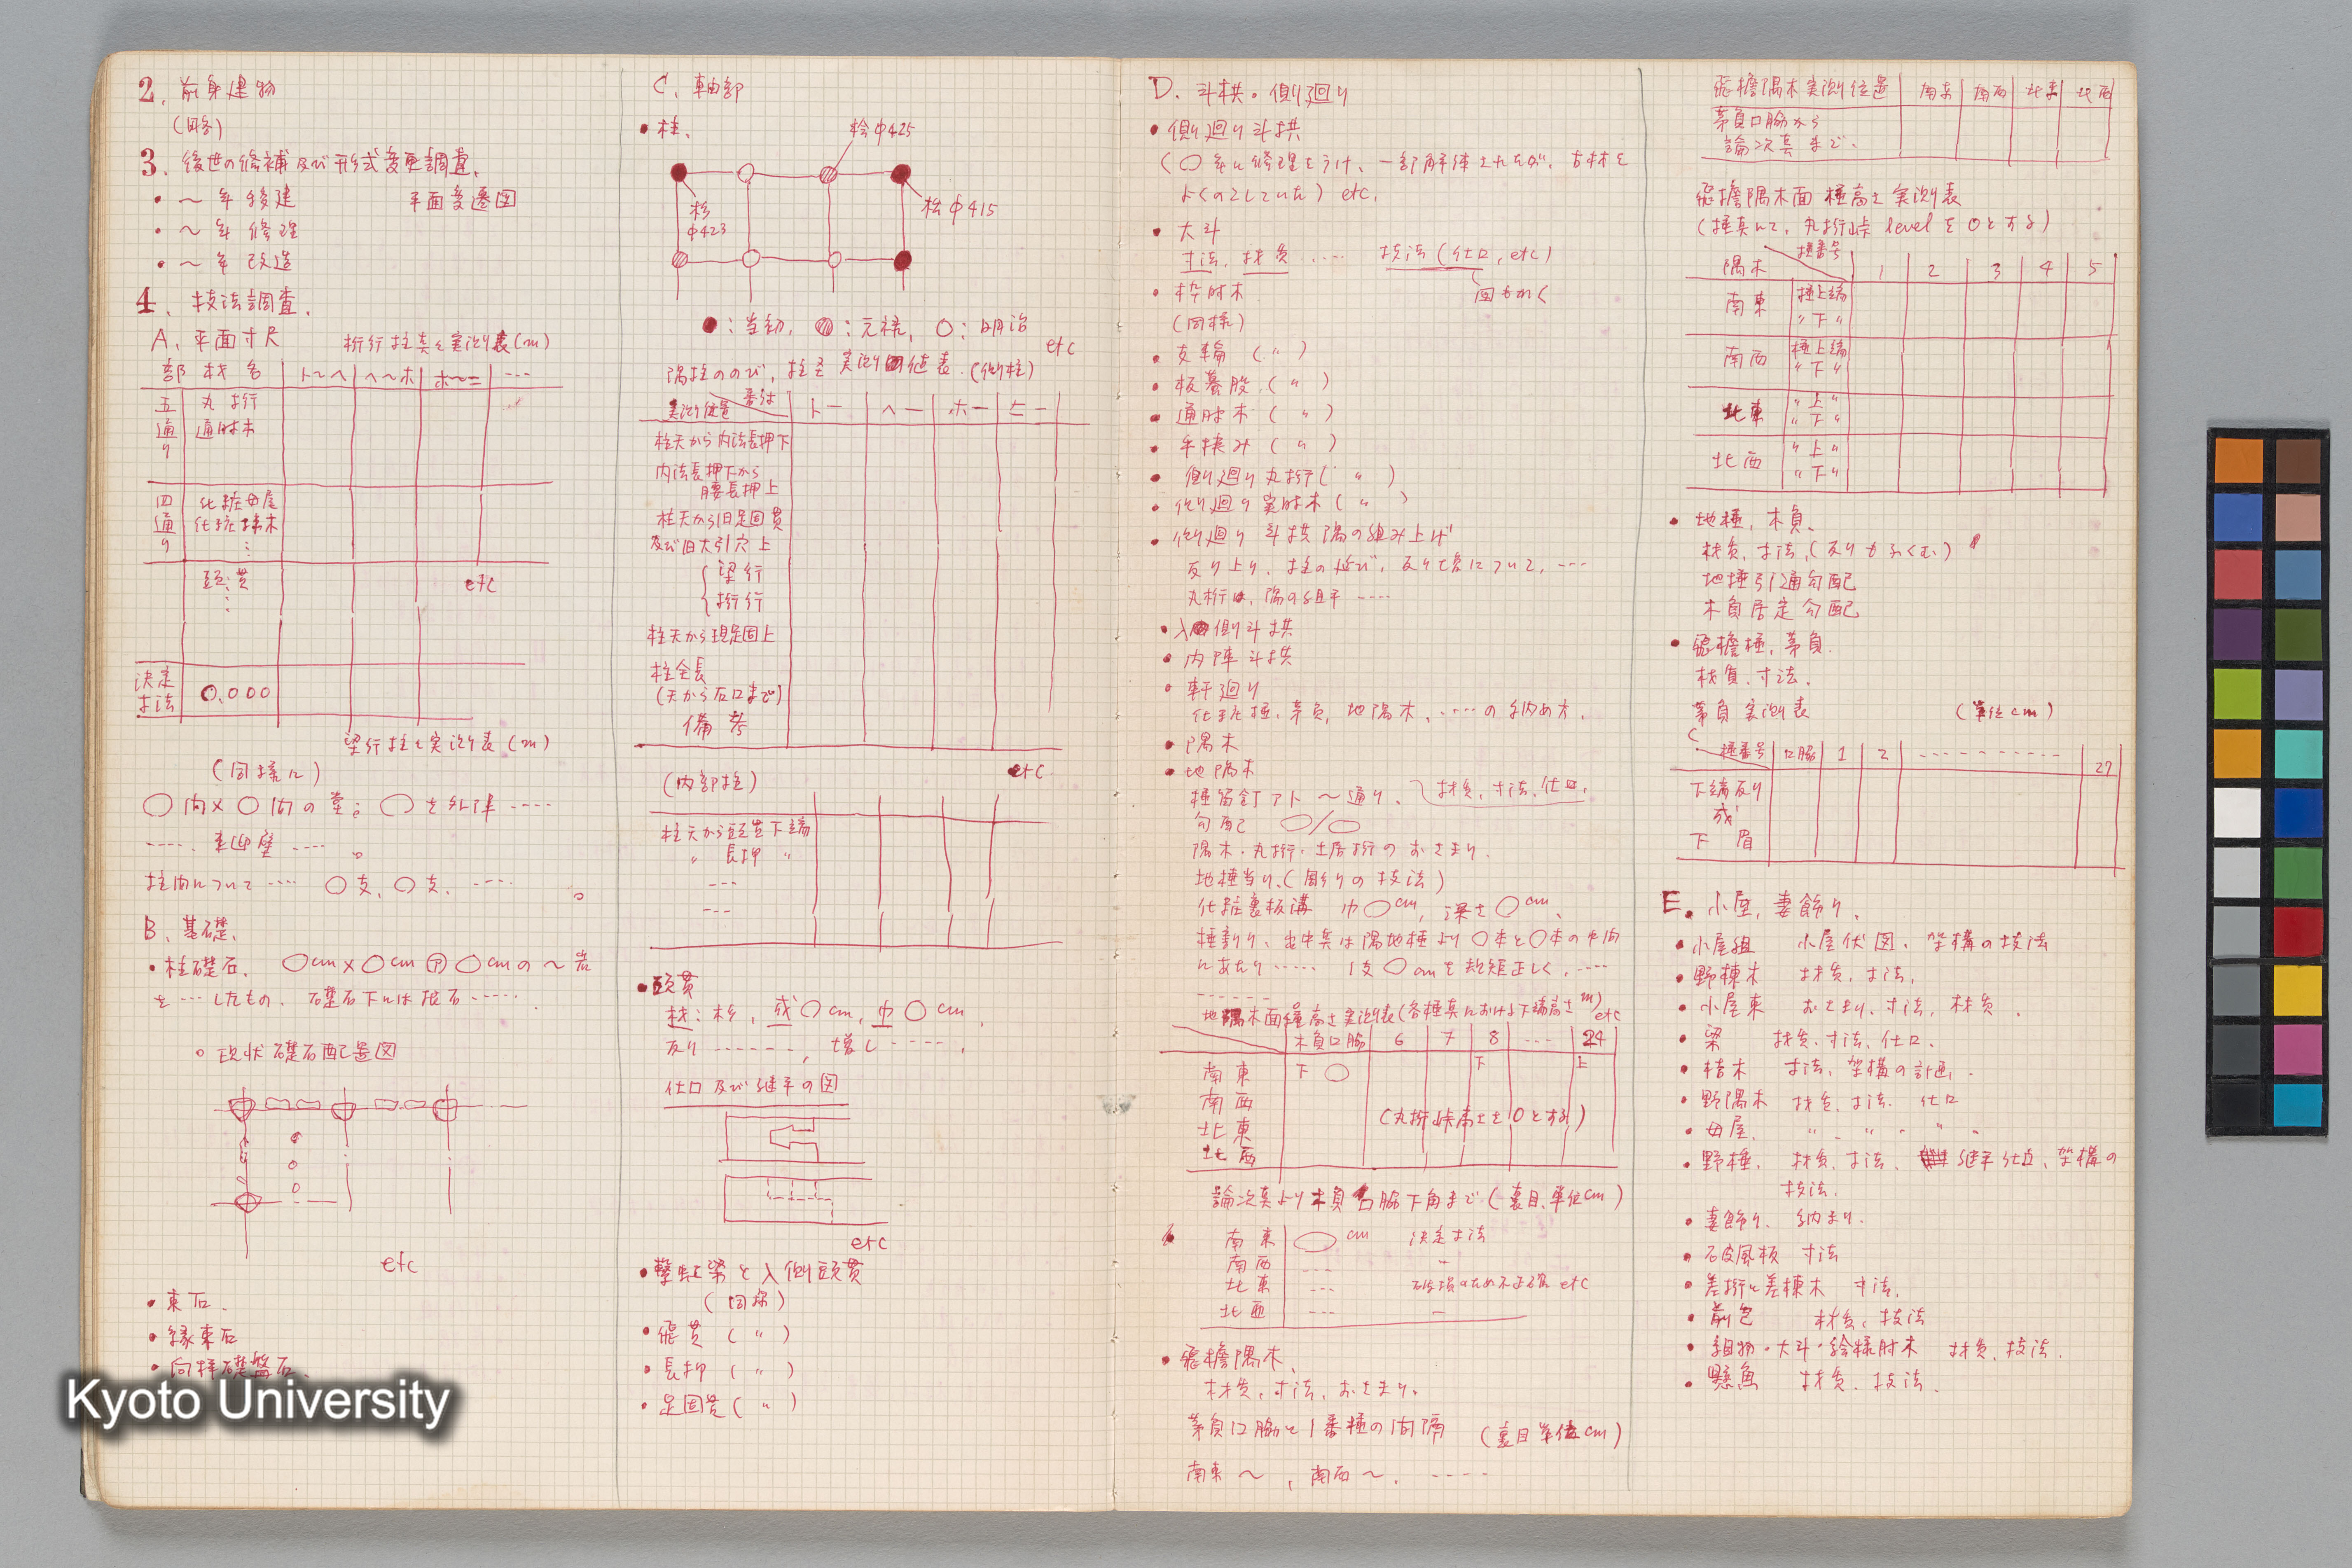 2. 前身建物
(略)
3. 後世の修補及び形式変更調査.
・〜年移建 平面変遷図
・〜年修理
・〜年改造
4. 技法調査.
A. 平面寸尺 桁行柱真々実測表(m)
部 材名 ト〜ヘ ヘ〜ホ ホ〜ニ ---
五通り 丸桁
通肘木
四通り 化粧母屋
化粧棟木
⋮
頭貫
⋮
etc
決定寸法 0,000
梁行柱々実測表(m)
(同様に)
○間×○間の堂; ○を外陣 ----
----, 来迎壁 ---- 。
柱間について ---- ○支, ○支, ---- 。
B. 基礎.
・柱礎石. ○cm×○cm ㋐ ○cmの〜岩
を---したもの. 礎石下には根石-----.
○ 現状礎石配置図
etc
・束石.
・縁束石
・向拝礎盤石.
C. 軸部
・柱.
桧φ425
杉φ423
桧φ415
●: 当初, ◍: 元禄, ○: 明治
etc
隅柱ののび, 柱径 実測値表. (側柱)
実測位置 番付 ト一 ヘ一 ホ一 ニ一
柱天から内法長押下
内法長押下から
腰長押上
柱天から旧足固貫
及び旧大引穴上
梁行
桁行
柱天から現足固上
柱全長
(天から石口まで)
備考
etc
(内部柱)
柱天から頭貫下端
〃 長押 〃
---
---
・頭貫
材: 杉, 成○cm, 巾○cm,
反り -------, 増し -----,
仕口及び継手の図
etc
・繋虹梁と入側頭貫
(同様)
・飛貫 ( 〃 )
・長押 ( 〃 )
・足固貫 ( 〃 )
D. 斗栱・側廻り
・側廻り斗栱
(○年に修理をうけ, 一部解体されたが, 古材を
よくのこしていた) etc.
・大斗
寸法, 材質 ---- 技法 (仕口, etc)
図もかく
・枠肘木
(同様)
・支輪 ( 〃 )
・板蟇股. ( 〃 )
・通肘木 ( 〃 )
・手挟み ( 〃 )
・側廻り丸桁 ( 〃 )
・側廻り実肘木 ( 〃 )
・側廻り斗栱隅の組み上げ
反り上り, 柱の延び, 反り増について, ---
丸桁は, 隅の組手 ----
・入側斗栱
・内陣斗栱
・軒廻り
化粧棰, 茅負, 地隅木, ----の納め方.
・隅木
・地隅木
棰留釘アト〜通り, 材質, 寸法, 仕口.
勾配 ○/○
隅木・丸桁・土居桁のおさまり.
地棰当り. (彫りの技法)
化粧裏板溝 巾○cm, 深さ○cm.
棰割り, 出中央は隅地棰より○本と○本の中間
にあたり----- 1支○cmを規矩正しく, ----
-------
地隅木面棰高さ実測表 (各棰真における下端高さ m) etc
木負口脇 6 7 8 --- 24
南東 下 ○ 下 上
南西
北東
北西
(丸桁峠高さを0とする)
論次真より木負口脇下角まで (裏目, 単位cm)
南東 ○cm 決定寸法
南西 --- 〃
北東 --- 破損のため不正確 etc
北西 --- ー
・飛檐隅木.
材質, 寸法, おさまり.
茅負口脇と1番棰の間隔 (裏目単位cm)
南東〜, 南西〜, -----
飛檐隅木実測位置 南東 南西 北東 北西
茅負口脇から
論次真まで.
飛檐隅木面棰高さ実測表
(棰真にて, 丸桁峠levelを0とする)
隅木 棰番号 1 2 3 4 5
南東 棰上端
〃下〃
南西 棰上端
〃下〃
北東 〃上〃
〃下〃
北西 〃上〃
〃下〃
・地棰, 木負.
材質, 寸法. (反りもふくむ)
地棰引通勾配
木負居定勾配
・飛檐棰, 茅負.
材質, 寸法.
茅負実測表 (単位cm)
棰番号 口脇 1 2 ---------- 27
下端反り
成
下眉
E. 小屋, 妻飾り.
・小屋組 小屋伏図. 架構の技法
・野棟木 材質, 寸法.
・小屋束 おさまり, 寸法, 材質.
・梁 材質, 寸法, 仕口.
・桔木 寸法, 架構の計画.
・野隅木 材質, 寸法. 仕口
・母屋. 〃 〃 〃
・野棰. 材質, 寸法, 継手仕口, 架構の
技法.
・妻飾り. 納まり.
・破風板 寸法
・差桁と差棟木 寸法.
・前包 材質, 技法
・組物・大斗・絵様肘木 材質, 技法.
・懸魚 材質, 技法.
Kyoto University